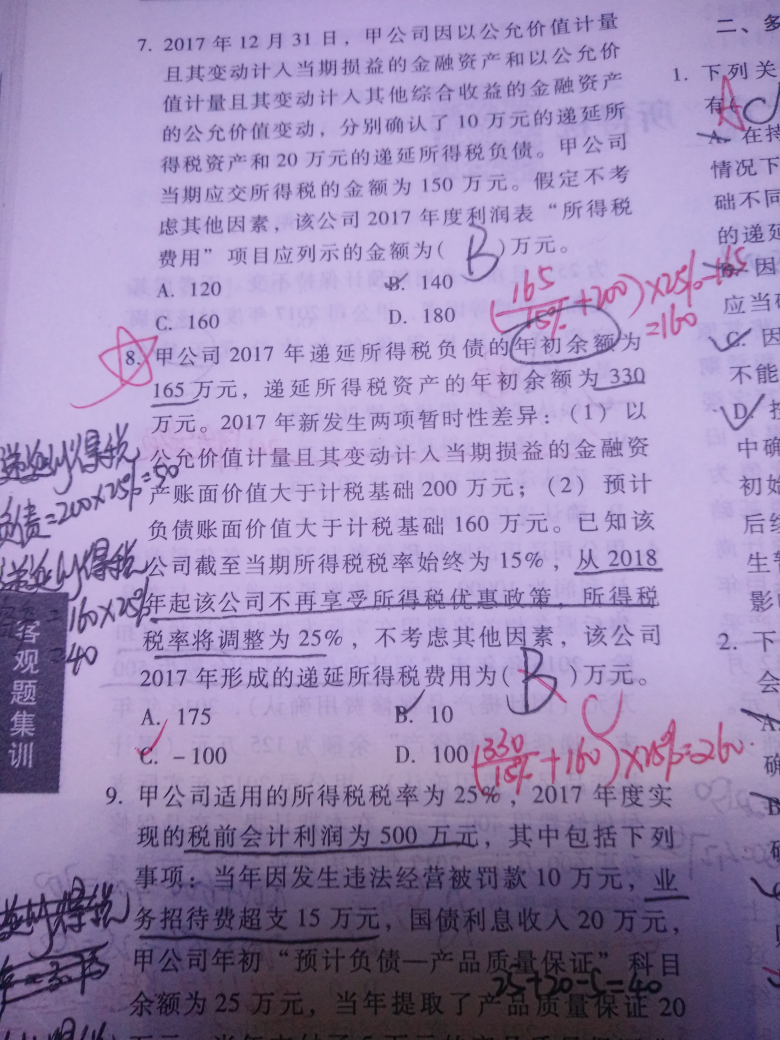 7. 2017 年 12 月 31 日，甲公司因以公允价值计量
且其变动计入当期损益的金融资产和以公允价
值计量且其变动计入其他综合收益的金融资产
的公允价值变动，分别确认了 10 万元的递延所
得税资产和 20 万元的递延所得税负债。甲公司
当期应交所得税的金额为 150 万元。假定不考
虑其他因素，该公司 2017 年度利润表“所得税
费用”项目应列示的金额为( B )万元。
A. 120
B. 140
C. 160
D. 180
(165/15%+200)×25%-165
=160
8. 甲公司 2017 年递延所得税负债的年初余额为
165 万元，递延所得税资产的年初余额为 330
万元。2017 年新发生两项暂时性差异：（1）以
公允价值计量且其变动计入当期损益的金融资
产账面价值大于计税基础 200 万元；（2）预计
负债账面价值大于计税基础 160 万元。已知该
公司截至当期所得税税率始终为 15%，从 2018
年起该公司不再享受所得税优惠政策，所得税
税率将调整为 25%，不考虑其他因素，该公司
2017 年形成的递延所得税费用为( B )万元。
C
A. 175
B. 10
C. －100
D. 100
(330/15%+160)×25%=260
递延所得税
负债=200×25%=50
递延所得税
=160×25%
=40
客观题集训
9. 甲公司适用的所得税税率为 25%，2017 年度实
现的税前会计利润为 500 万元，其中包括下列
事项：当年因发生违法经营被罚款 10 万元，业
务招待费超支 15 万元，国债利息收入 20 万元，
甲公司年初“预计负债—产品质量保证”科目
25+20-5=40
余额为 25 万元，当年提取了产品质量保证 20
二、多
1. 下列关
有(
A. 在持
情况下
础不同
的递延
B. 因
应当确
C. 因
不能
D. 按
中确
初始
后续
生暂
影响
2. 下
会
A.
确
B